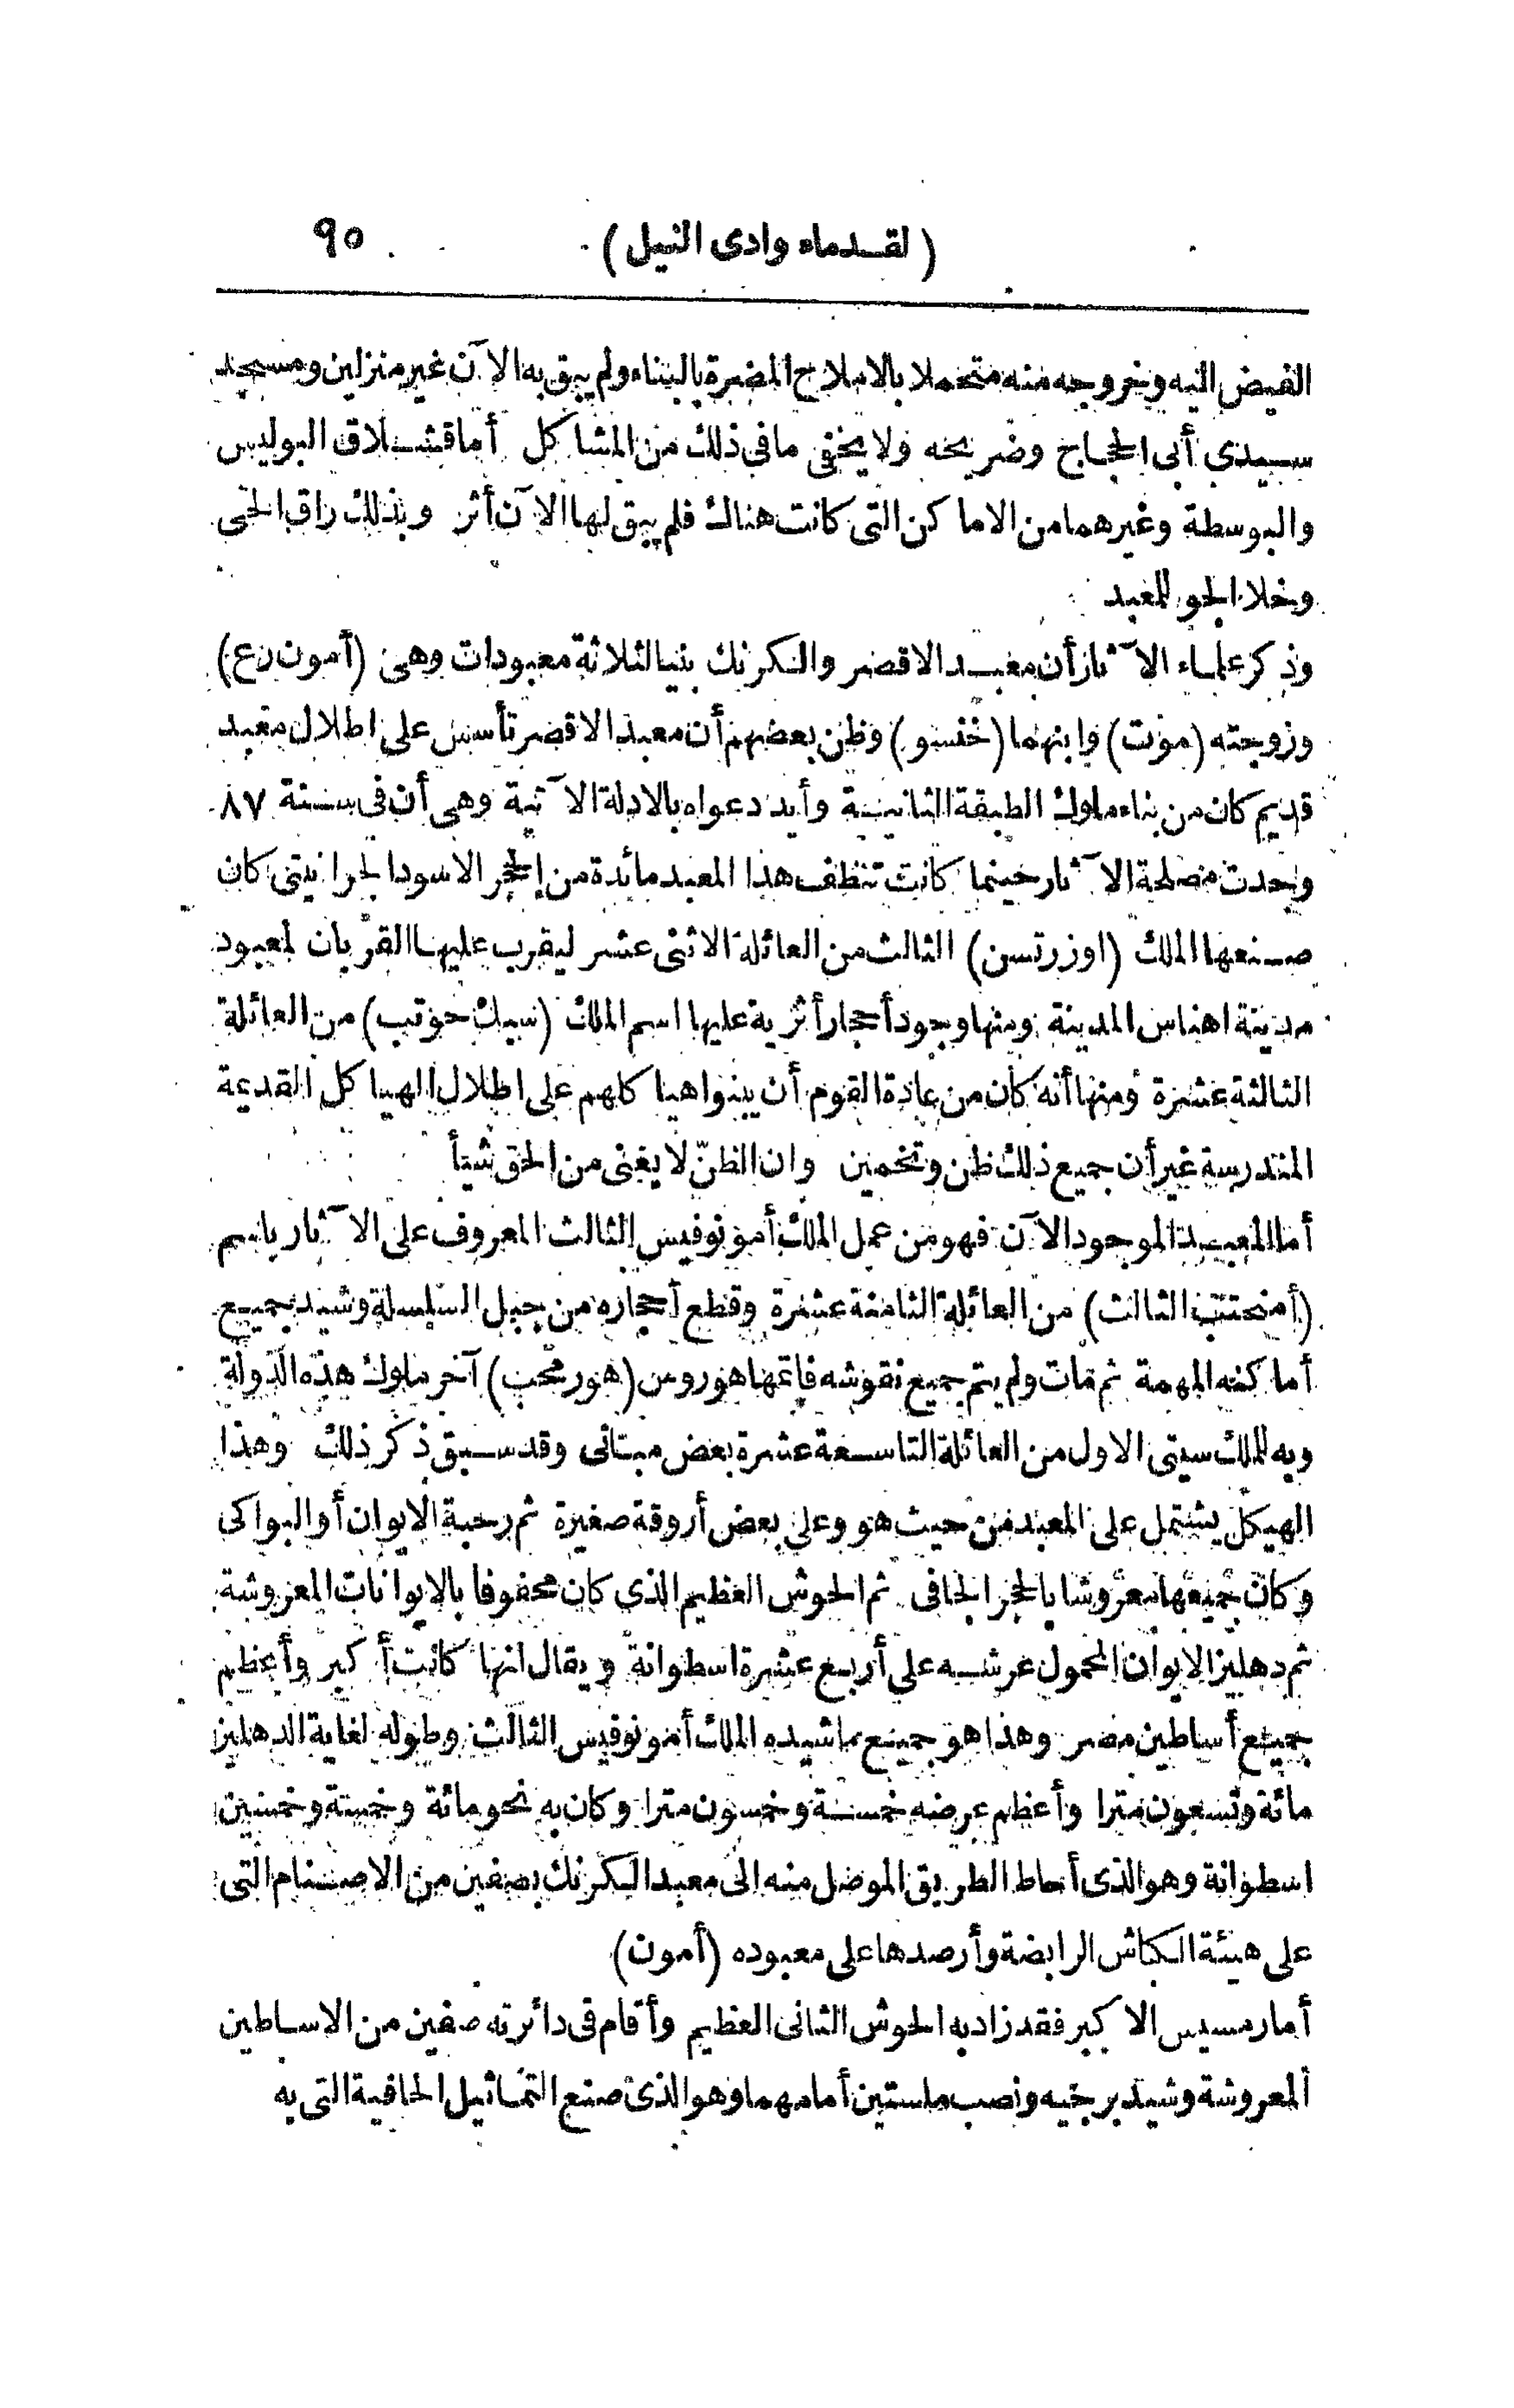 (لقدماء وادى النيل) ٩٥
الفيض اليه وخروجه منه متحملا بالاملاح المضرة بالبناء ولم يبق به الآن غير منزلين ومسجد
سيدي أبى الحجاج وضريحه ولا يخفى ما فى ذلك من المشاكل أما قشلاق البوليس
والبوسطة وغيرهما من الاماكن التى كانت هناك فلم يبق لها الآن أثر وبذلك راق الحى
وخلا الجو للمعبد
وذكر علماء الآثار أن معبد الاقصر والكرنك بنيا لثلاثة معبودات وهى (أمون رع)
وزوجته (موت) وابنهما (خنسو) وظن بعضهم أن معبد الاقصر تأسس على اطلال معبد
قديم كان من بناء ملوك الطبقة الثانية وأيد دعواه بالادلة الآتية وهى أن فى سنة ٨٧
وجدت مصلحة الآثار حينما كانت تنظف هذا المعبد مائدة من الحجر الاسود الجرانيتى كان
صنعها الملك (اوزرتسن) الثالث من العائلة الاثنى عشر ليقرب عليها القربان لمعبود
مدينة اهناس المدينة ومنها وجود أحجار أثرية عليها اسم الملك (سبك حوتب) من العائلة
الثالثة عشرة ومنها أنه كان من عادة القوم أن يبنوا هياكلهم على اطلال الهياكل القديمة
المندرسة غير أن جميع ذلك ظن وتخمين وان الظنّ لا يغنى من الحق شيأ
أما المعبد الموجود الآن فهو من عمل الملك أمونوفيس الثالث المعروف على الآثار باسم
(أمنحتتب الثالث) من العائلة الثامنة عشرة وقطع أحجاره من جبل السلسلة وشيد بجميع
أماكنه المهمة ثم مات ولم يتم جميع نقوشه فاتمها هوروس (هور محب) آخر ملوك هذه الدولة
وبه للملك سيتى الاول من العائلة التاسعة عشرة بعض مبانى وقد سبق ذكر ذلك وهذا
الهيكل يشتمل على المعبد من حيث هو وعلى بعض أروقة صغيرة ثم رحبة الايوان أو البواكى
وكان جميعها معروشا بالحجر الجافى ثم الحوش العظيم الذى كان محفوفا بالايوانات المعروشة
ثم دهليز الايوان المحمول عرشه على أربع عشرة اسطوانة ويقال انها كانت أكبر وأعظم
جميع أساطين مصر وهذا هو جميع ما شيده الملك أمونوفيس الثالث وطوله لغاية الدهليز
مائة وتسعون مترا وأعظم عرضه خمسة وخمسون مترا وكان به نحو مائة وخمسة وخمسين
اسطوانة وهو الذى أحاط الطريق الموصل منه الى معبد الكرنك بصفين من الاصنام التى
على هيئة الكباش الرابضة وأرصدها على معبوده (أمون)
أما رمسيس الاكبر فقد زاد به الحوش الثانى العظيم وأقام فى دائرته صفين من الاساطين
المعروشة وشيد برجيه ونصب مسلتين أمامهما وهو الذى صنع التماثيل الجافية التى به